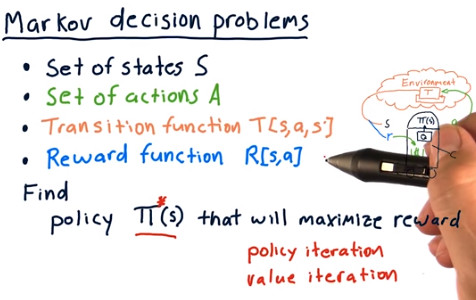 Markov decision problems
• Set of states S
• Set of actions A
• Transition function T[s,a,s']
• Reward function R[s,a]
Find
policy π*(s) that will maximize reward
policy iteration
value iteration
Environment
T
S
r
π(s)
Q
a